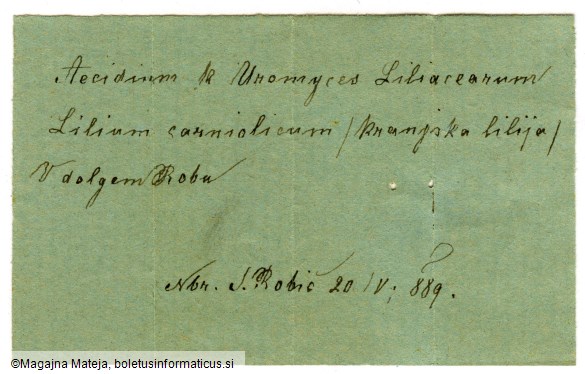 Aecidium k Uromyces Liliacearum
Lilium carniolicum /kranjska lilija/
V dolgem Robu
Nbr. S. Robič 20/V; 889.
©Magajna Mateja, boletusinformaticus.si